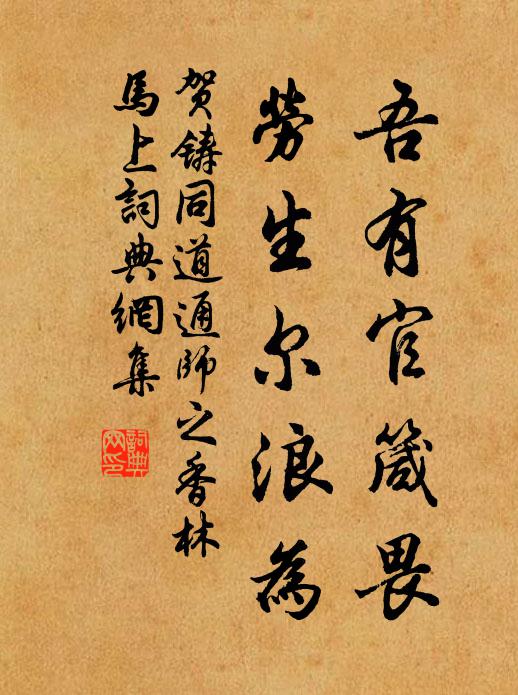 吾有官箴畏
勞生尔浪為
贺鑄同道通師之香林
馬上詞典網集
詞典
网印